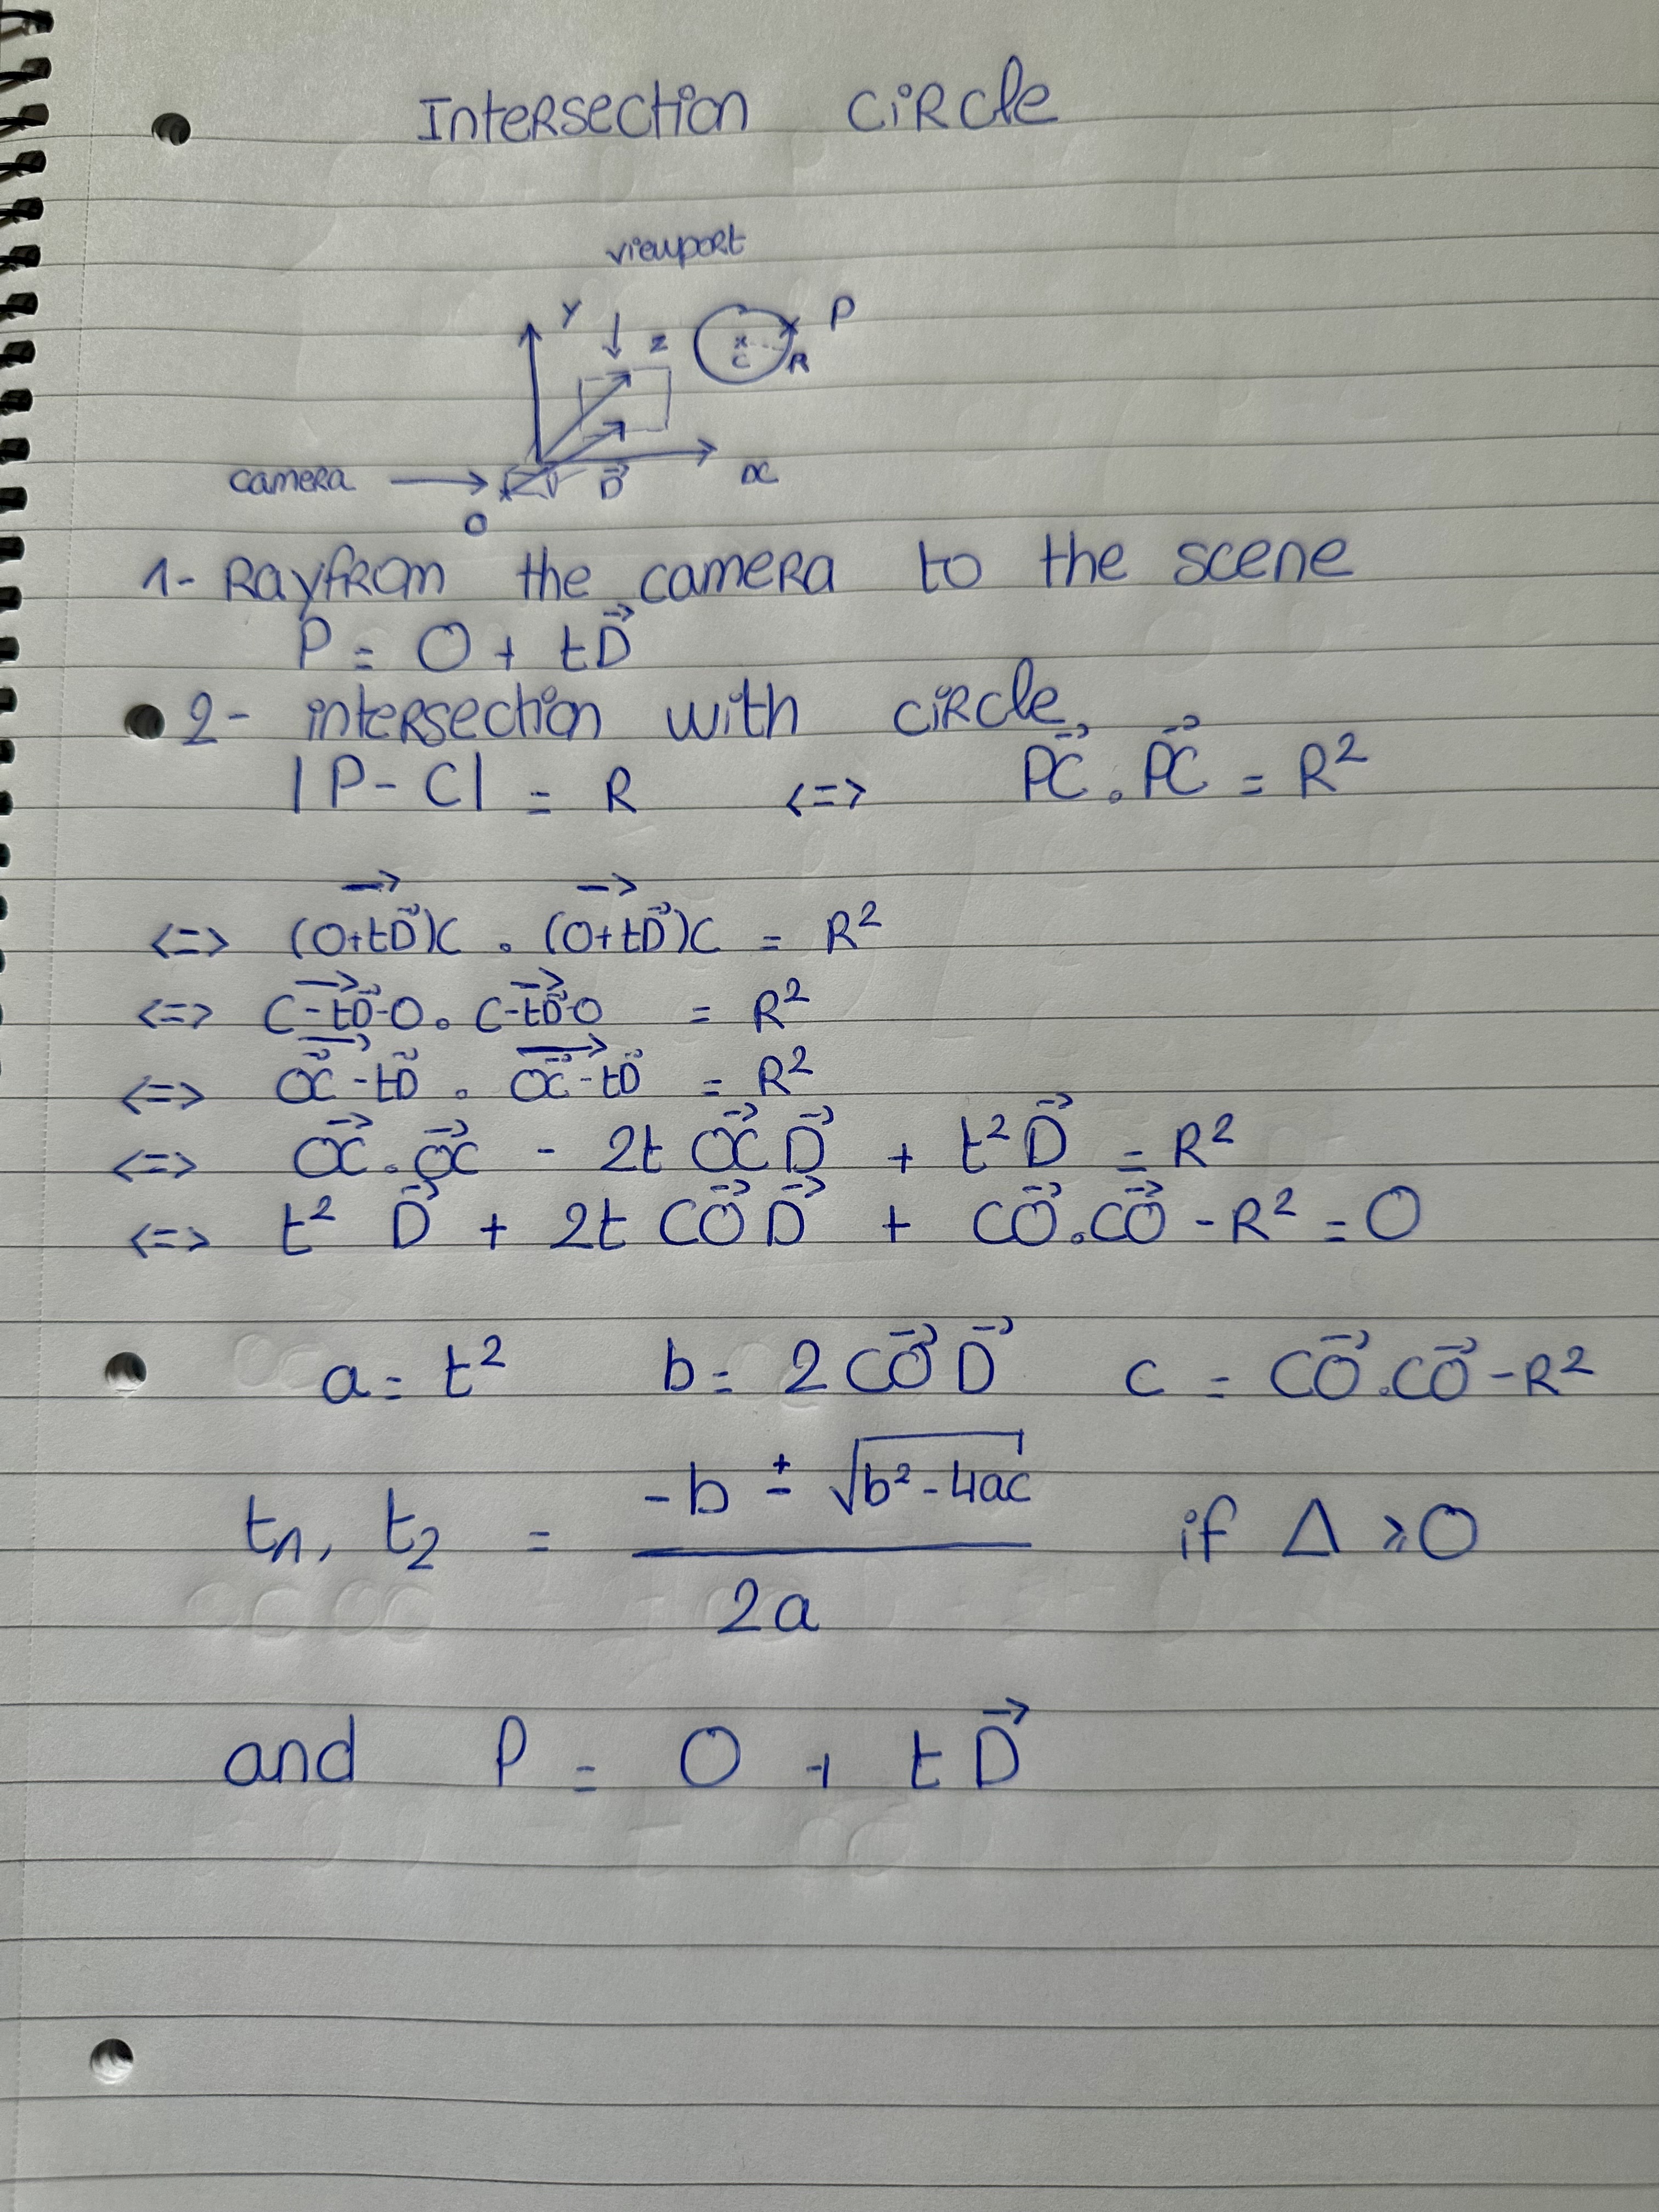 Intersection circle
viewport
Y Z P
C R
camera → D⃗ x
O
1- Ray from the camera to the scene
P = O + tD⃗
2- intersection with circle,
|P - C| = R <=> PC⃗ . PC⃗ = R²
<=> (O+tD⃗)C . (O+tD⃗)C = R²
<=> C-tD⃗-O . C-tD⃗-O = R²
<=> OC⃗ - tD⃗ . OC⃗ - tD⃗ = R²
<=> OC⃗ . OC⃗ - 2t OC⃗ D⃗ + t² D⃗ = R²
<=> t² D⃗ + 2t CO⃗ D⃗ + CO⃗ . CO⃗ - R² = 0
a = t² b = 2 CO⃗ D⃗ c = CO⃗ . CO⃗ - R²
t₁, t₂ = (-b ± √(b² - 4ac)) / 2a if Δ ⩾ 0
and P = O + tD⃗